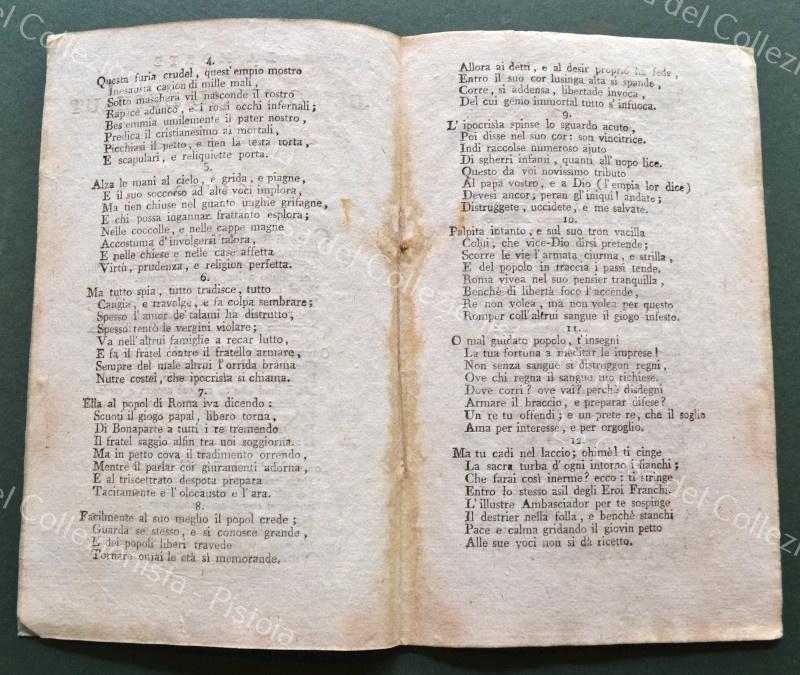 4.
Questa furia crudel, quest'empio mostro
Inesausta cagion di mille mali,
Sotto maschera vil nasconde il rostro
Rapace adunco, e i rossi occhi infernali;
Bestemmia umilemente il pater nostro,
Predica il cristianesimo ai mortali,
Picchiasi il petto, e tien la testa torta,
E scapulari, e reliquiette porta.
5.
Alza le mani al cielo, e grida, e piagne,
E il suo soccorso ad alte voci implora,
Ma tien chiuse nel guanto unghie grifagne,
E chi possa ingannar frattanto esplora;
Nelle cocolle, e nelle cappe magne
Accostuma d'involgersi talora,
E nelle chiese e nelle case affetta
Virtù, prudenza, e religion perfetta.
6.
Ma tutto spia, tutto tradisce, tutto
Cangia, e travolge, e fa colpa sembrare;
Spesso l'amor de' talami ha distrutto,
Spesso tentò le vergini violare;
Va nell'altrui famiglie a recar lutto,
E fa il fratel contro il fratello armare,
Sempre del male altrui l'orrida brama
Nutre costei, che ipocrisìa si chiama.
7.
Ella al popol di Roma iva dicendo:
Scuoti il giogo papal, libero torna,
Di Bonaparte a tutti i re tremendo
Il fratel saggio alfin tra noi soggiorna.
Ma in petto cova il tradimento orrendo,
Mentre il parlar coi giuramenti adorna,
E al triscettrato despota prepara
Tacitamente e l'olocausto e l'ara.
8.
Facilmente al suo meglio il popol crede;
Guarda se stesso, e si conosce grande,
E dei popoli liberi travede
Tornare omai le età sì memorande.
Allora ai detti, e al desir proprio ha fede,
Entro il suo cor lusinga alta si spande,
Corre, si addensa, libertade invoca,
Del cui genio immortal tutto s'infuoca.
9.
L'ipocrisìa spinse lo sguardo acuto,
Poi disse nel suo cor: son vincitrice.
Indi raccolse numeroso ajuto
Di sgherri infami, quanti all'uopo lice.
Questo da voi novissimo tributo
Al papa vostro, e a Dio (l'empia lor dice)
Devesi ancor; peran gl'iniqui! andate;
Distruggete, uccidete, e me salvate.
10.
Palpita intanto, e sul suo tron vacilla
Colui, che vice-Dio dirsi pretende;
Scorre le vie l'armata ciurma, e strilla,
E del popolo in traccia i passi tende.
Roma vivea nel suo pensier tranquilla,
Benchè di libertà foco l'accende,
Re non volea, ma non volea per questo
Romper coll'altrui sangue il giogo infesto.
11.
O mal guidato popolo, t'insegni
La tua fortuna a meditar le imprese!
Non senza sangue si distruggon regni,
Ove chi regna il sangue tuo richiese.
Dove corri? ove vai? perchè disdegni
Armare il braccio, e preparar difese?
Un re tu offendi; e un prete re, che il soglio
Ama per interesse, e per orgoglio.
12.
Ma tu cadi nel laccio; ohimè! ti cinge
La sacra turba d'ogni intorno i fianchi;
Che farai così inerme? ecco: ti stringe
Entro lo stesso asil degli Eroi Franchi.
L'illustre Ambasciador per te sospinge
Il destrier nella folla, e benchè stanchi
Pace e calma gridando il giovin petto
Alle sue voci non si dà ricetto.
del Collezionista - Pistoia